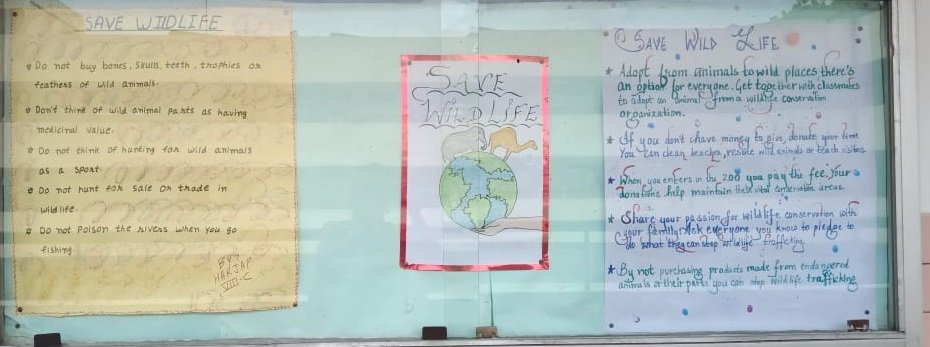 SAVE WILDLIFE
Do not buy bones, Skulls, teeth, trophies or
feathers of wild animals.
Don't think of wild animal parts as having
medicinal value.
Do not think of hunting for wild animals
as a sport.
Do not hunt for sale or trade in
wildlife.
Do not Poison the rivers when you go
fishing.
BY
HARJAP
VIII-C
SAVE
WILDLIFE
SAVE WILD LIFE
Adopt from animals to wild places there's
an option for everyone. Get together with classmates
to adopt an animal from a wildlife conservation
organization.
If you don't have money to give, donate your time
You can clean beachs, rescue wild animals or teach visitors
When you enters in zoo you pay the fee. Your
donations help maintain these vital conservation areas.
Share your passion for wildlife conservation with
your family Ask everyone you know to pledge to
do what they can stop wildlife trafficking
By not purchasing products made from endangered
animals or their parts you can stop wildlife trafficking